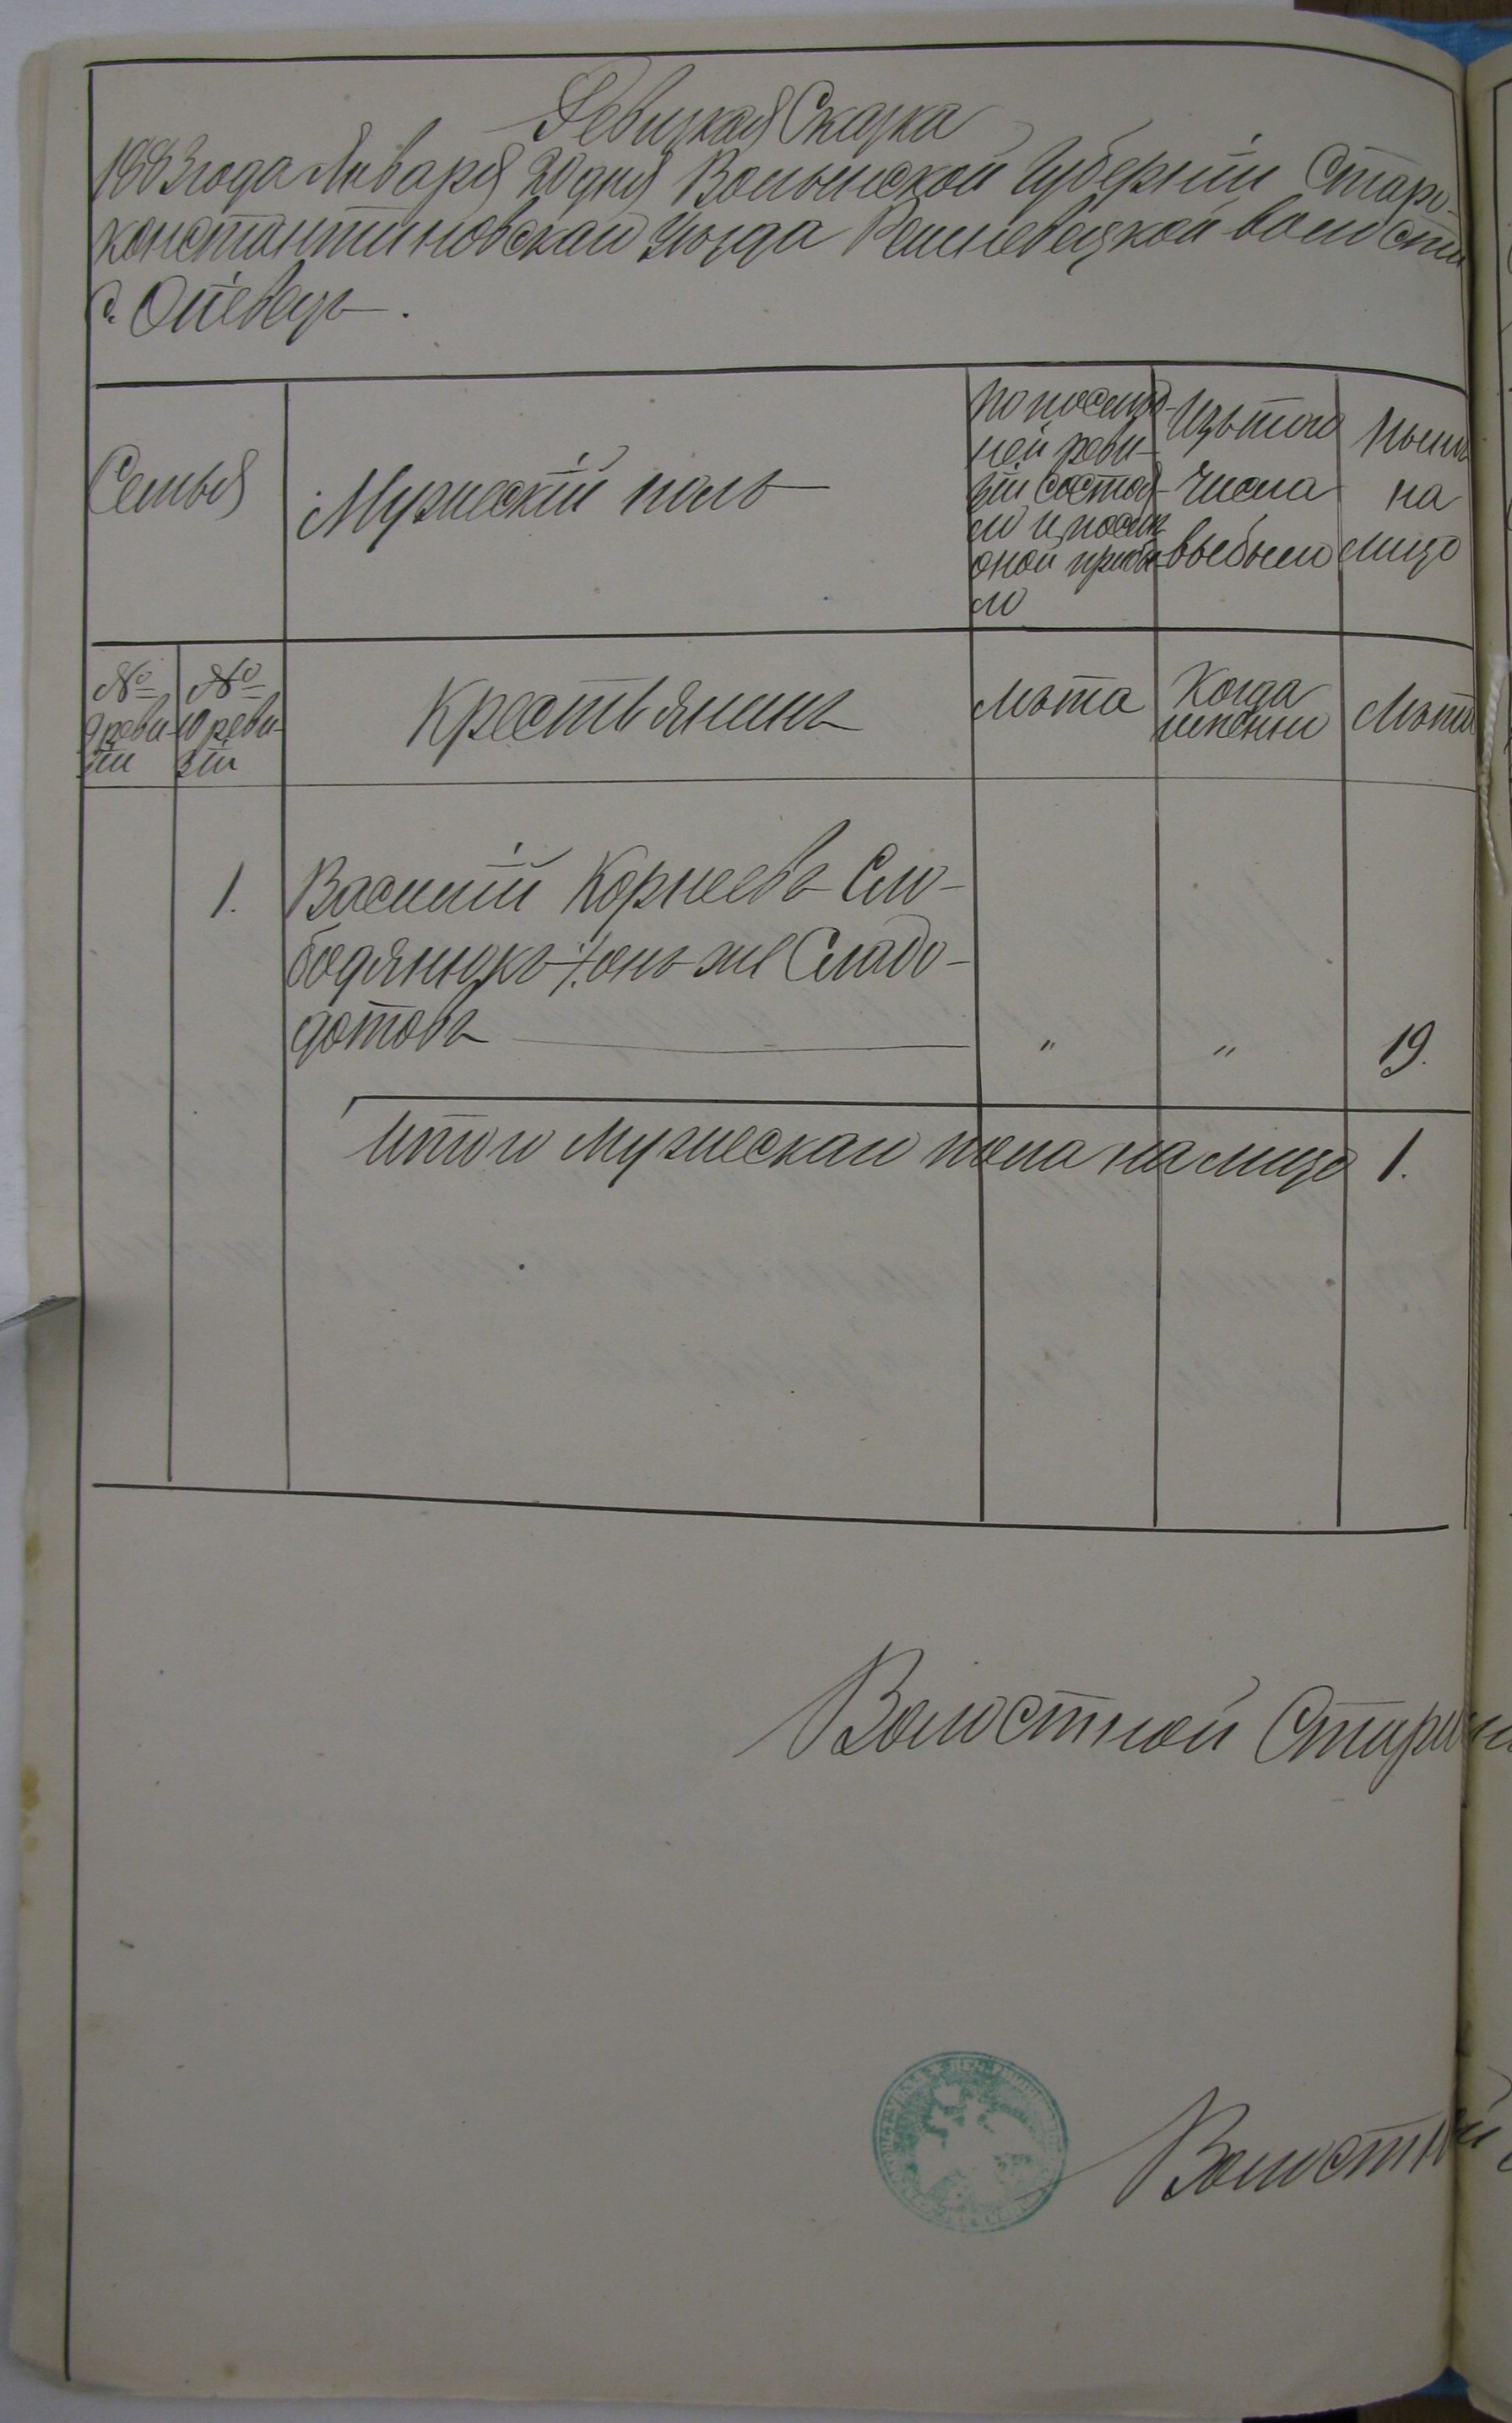 Ревизкая Сказка
1883 года Января 20 дня Волынской Губерніи Старо-
константиновскаго Уѣзда волости
с.
Семья
Мужескій полъ
По послѣд-
ней реви-
зіи состоя-
ло и послѣ
оной прибы-
ло
Изъ того
числа
выбыло
Нынѣ
на
лицо
№ 9 реви-
зіи
№ 10 реви-
зіи
Крестьянинъ
Лѣта
Когда
именно
Лѣта
1. Василій Корнеевъ Сло-
бодянюкъ /: онъ же Сладо-
" " 19.
Итого Мужескаго пола на лицо 1.
Волостной